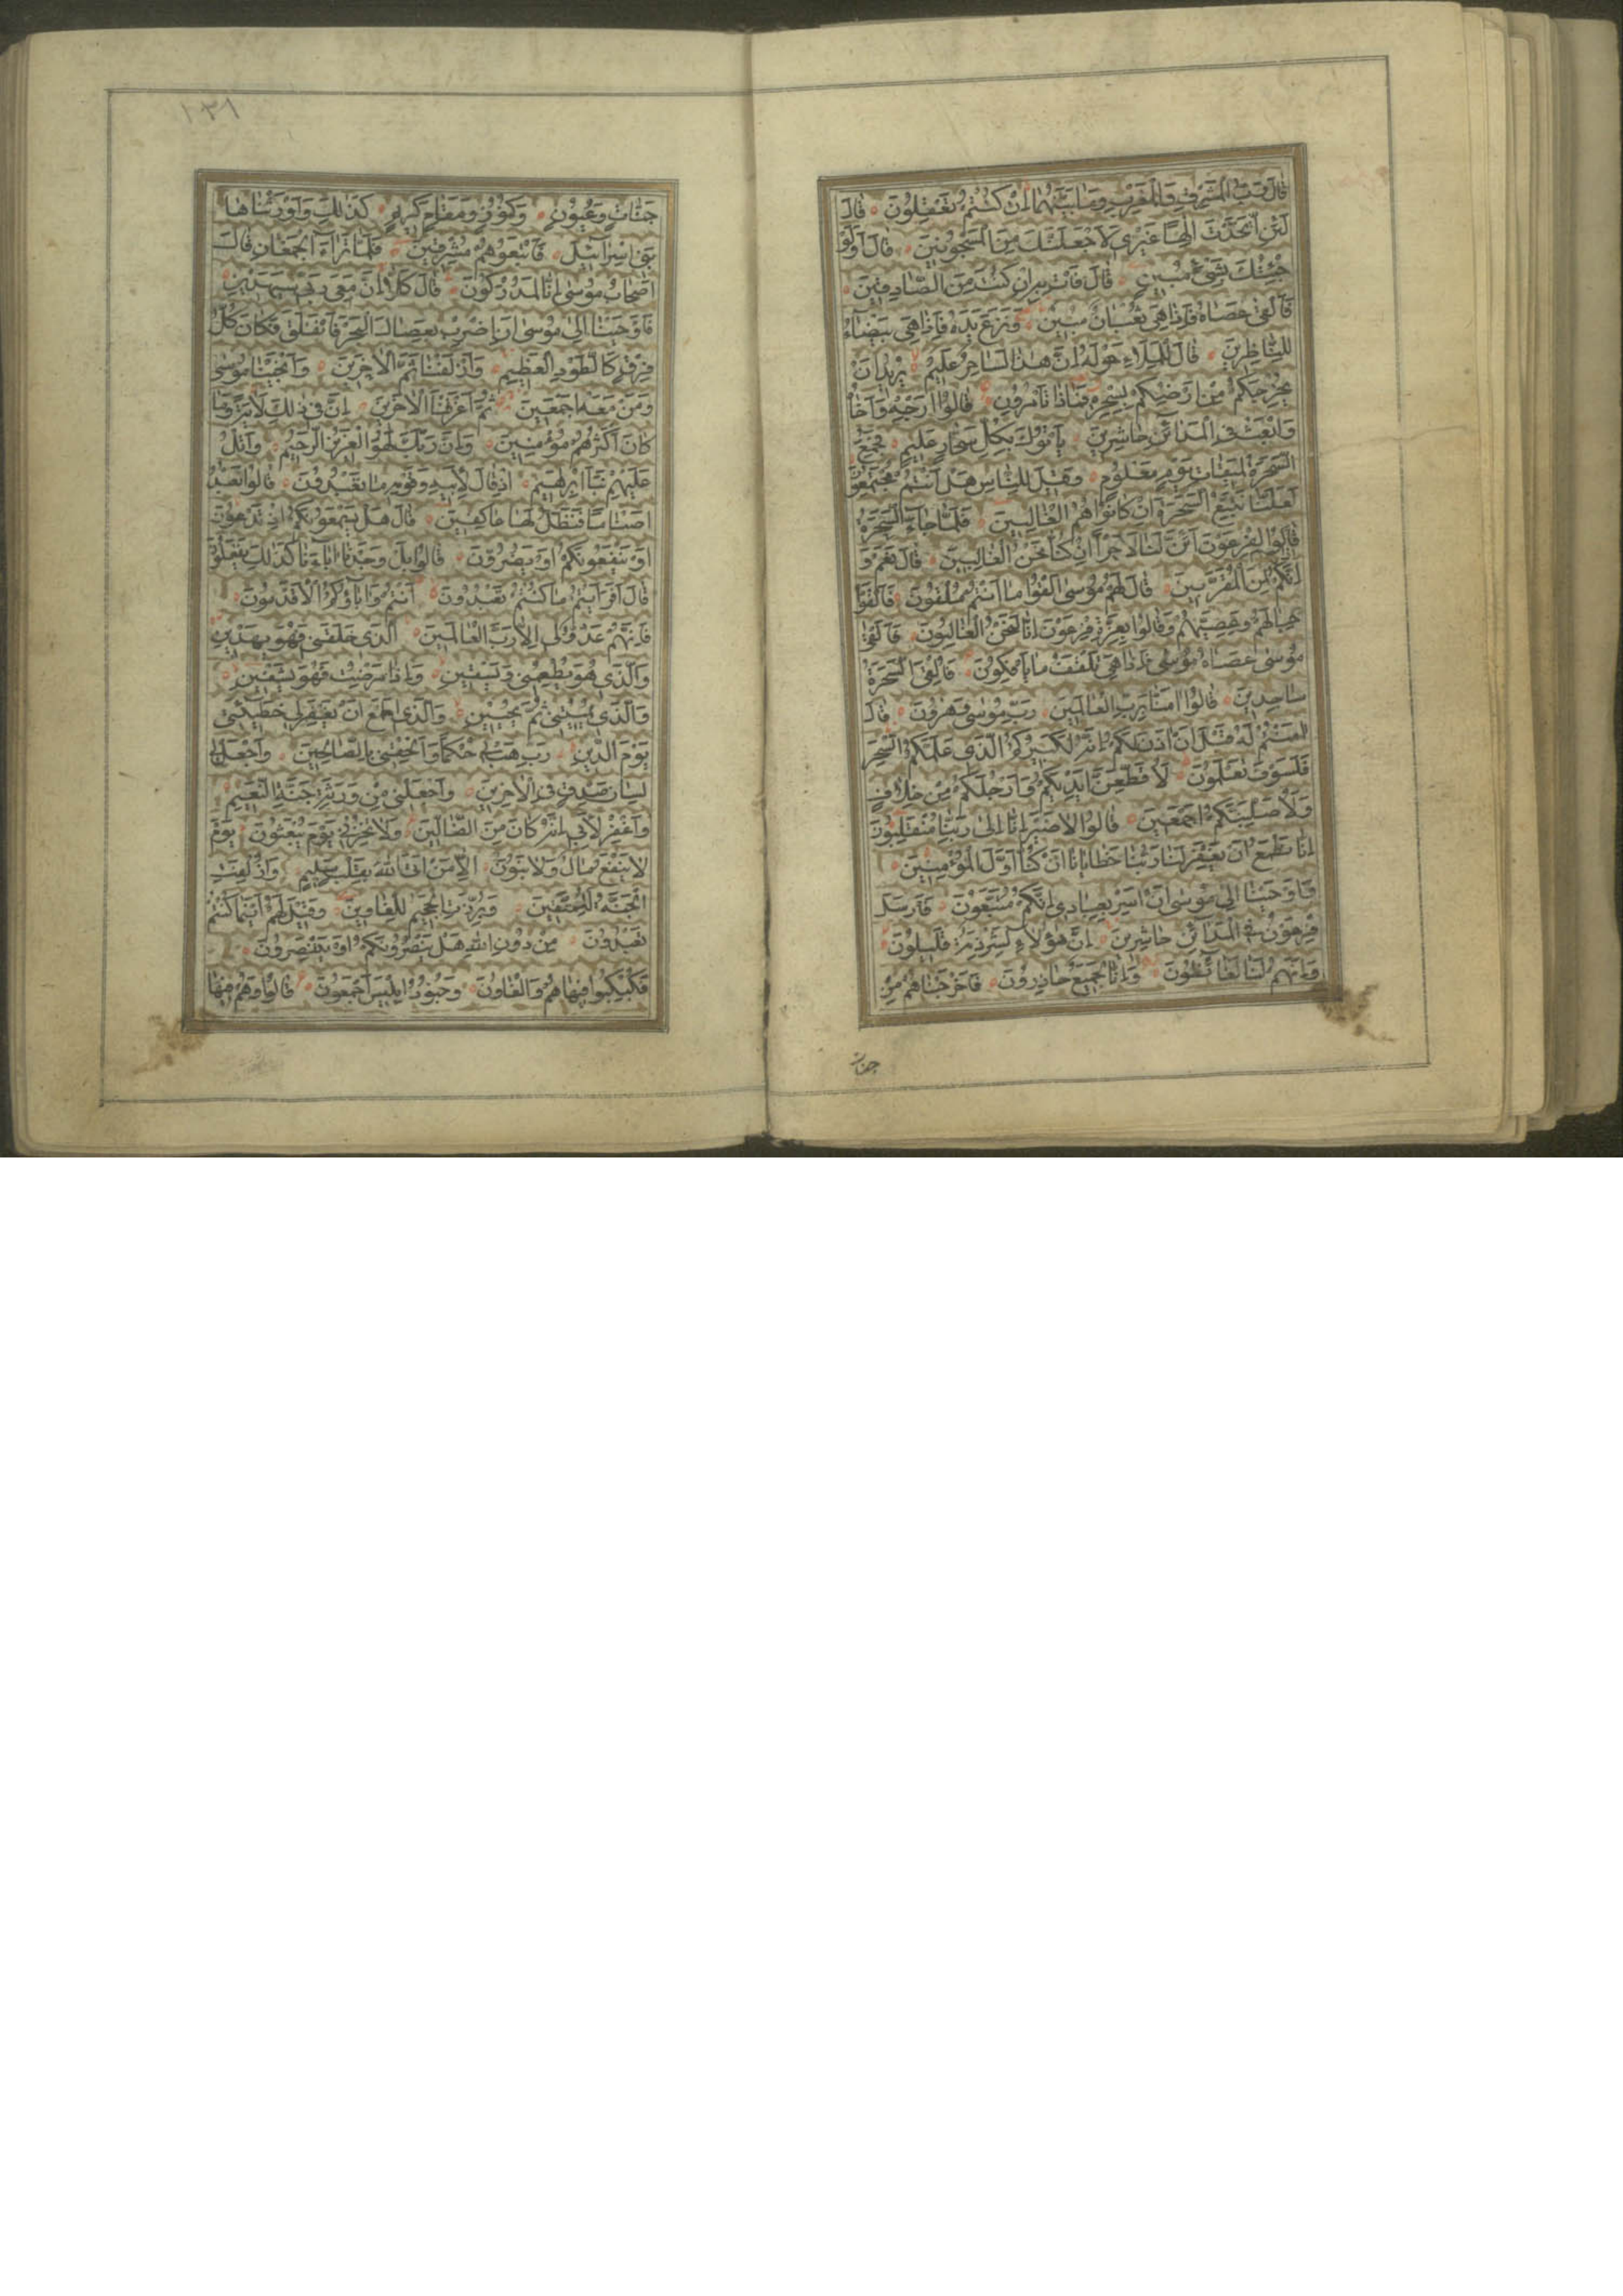 قَالَ رَبُّ الْمَشْرِقِ وَالْمَغْرِبِ وَمَا بَيْنَهُمَا اِنْ كُنْتُمْ تَعْقِلُونَ قَالَ
لَئِنِ اتَّخَذْتَ اِلٰهًا غَيْرِي لَاَجْعَلَنَّكَ مِنَ الْمَسْجُونِينَ قَالَ اَوَلَوْ
جِئْتُكَ بِشَيْءٍ مُبِينٍ قَالَ فَأْتِ بِهِ اِنْ كُنْتَ مِنَ الصَّادِقِينَ
فَاَلْقٰى عَصَاهُ فَاِذَا هِيَ ثُعْبَانٌ مُبِينٌ وَنَزَعَ يَدَهُ فَاِذَا هِيَ بَيْضَاءُ
لِلنَّاظِرِينَ قَالَ لِلْمَلَاءِ حَوْلَهُ اِنَّ هٰذَا لَسَاحِرٌ عَلِيمٌ يُرِيدُ اَنْ
يُخْرِجَكُمْ مِنْ اَرْضِكُمْ بِسِحْرِهِ فَمَاذَا تَأْمُرُونَ قَالُوا اَرْجِهْ وَاَخَاهُ
وَابْعَثْ فِي الْمَدَائِنِ حَاشِرِينَ يَأْتُوكَ بِكُلِّ سَحَّارٍ عَلِيمٍ فَجُمِعَ
السَّحَرَةُ لِمِيقَاتِ يَوْمٍ مَعْلُومٍ وَقِيلَ لِلنَّاسِ هَلْ اَنْتُمْ مُجْتَمِعُونَ
لَعَلَّنَا نَتَّبِعُ السَّحَرَةَ اِنْ كَانُوا هُمُ الْغَالِبِينَ فَلَمَّا جَاءَ السَّحَرَةُ
قَالُوا لِفِرْعَوْنَ اَئِنَّ لَنَا لَاَجْرًا اِنْ كُنَّا نَحْنُ الْغَالِبِينَ قَالَ نَعَمْ وَ
اِنَّكُمْ اِذًا لَمِنَ الْمُقَرَّبِينَ قَالَ لَهُمْ مُوسٰى اَلْقُوا مَا اَنْتُمْ مُلْقُونَ فَاَلْقَوْا
حِبَالَهُمْ وَعِصِيَّهُمْ وَقَالُوا بِعِزَّةِ فِرْعَوْنَ اِنَّا لَنَحْنُ الْغَالِبُونَ فَاَلْقٰى
مُوسٰى عَصَاهُ فَاِذَا هِيَ تَلْقَفُ مَا يَأْفِكُونَ فَاُلْقِيَ السَّحَرَةُ
سَاجِدِينَ قَالُوا اٰمَنَّا بِرَبِّ الْعَالَمِينَ رَبِّ مُوسٰى وَهٰرُونَ قَالَ
اٰمَنْتُمْ لَهُ قَبْلَ اَنْ اٰذَنَ لَكُمْ اِنَّهُ لَكَبِيرُكُمُ الَّذِي عَلَّمَكُمُ السِّحْرَ
فَلَسَوْفَ تَعْلَمُونَ لَاُقَطِّعَنَّ اَيْدِيَكُمْ وَاَرْجُلَكُمْ مِنْ خِلَافٍ
وَلَاُصَلِّبَنَّكُمْ اَجْمَعِينَ قَالُوا لَا ضَيْرَ اِنَّا اِلٰى رَبِّنَا مُنْقَلِبُونَ
اِنَّا نَطْمَعُ اَنْ يَغْفِرَ لَنَا رَبُّنَا خَطَايَانَا اَنْ كُنَّا اَوَّلَ الْمُؤْمِنِينَ
وَاَوْحَيْنَا اِلٰى مُوسٰى اَنْ اَسْرِ بِعِبَادِي اِنَّكُمْ مُتَّبَعُونَ فَاَرْسَلَ
فِرْعَوْنُ فِي الْمَدَائِنِ حَاشِرِينَ اِنَّ هٰؤُلَاءِ لَشِرْذِمَةٌ قَلِيلُونَ
وَاِنَّهُمْ لَنَا لَغَائِظُونَ وَاِنَّا لَجَمِيعٌ حَاذِرُونَ فَاَخْرَجْنَاهُمْ مِنْ
جنات
١٣١
جَنَّاتٍ وَعُيُونٍ وَكُنُوزٍ وَمَقَامٍ كَرِيمٍ كَذٰلِكَ وَاَوْرَثْنَاهَا
بَنِي اِسْرَائِيلَ فَاَتْبَعُوهُمْ مُشْرِقِينَ فَلَمَّا تَرَاءَ الْجَمْعَانِ قَالَ
اَصْحَابُ مُوسٰى اِنَّا لَمُدْرَكُونَ قَالَ كَلَّا اِنَّ مَعِيَ رَبِّي سَيَهْدِينِ
فَاَوْحَيْنَا اِلٰى مُوسٰى اَنِ اضْرِبْ بِعَصَاكَ الْبَحْرَ فَانْفَلَقَ فَكَانَ كُلُّ
فِرْقٍ كَالطَّوْدِ الْعَظِيمِ وَاَزْلَفْنَا ثَمَّ الْاٰخَرِينَ وَاَنْجَيْنَا مُوسٰى
وَمَنْ مَعَهُ اَجْمَعِينَ ثُمَّ اَغْرَقْنَا الْاٰخَرِينَ اِنَّ فِي ذٰلِكَ لَاٰيَةً وَمَا
كَانَ اَكْثَرُهُمْ مُؤْمِنِينَ وَاِنَّ رَبَّكَ لَهُوَ الْعَزِيزُ الرَّحِيمُ وَاتْلُ
عَلَيْهِمْ نَبَاَ اِبْرٰهِيمَ اِذْ قَالَ لِاَبِيهِ وَقَوْمِهِ مَا تَعْبُدُونَ قَالُوا نَعْبُدُ
اَصْنَامًا فَنَظَلُّ لَهَا عَاكِفِينَ قَالَ هَلْ يَسْمَعُونَكُمْ اِذْ تَدْعُونَ
اَوْ يَنْفَعُونَكُمْ اَوْ يَضُرُّونَ قَالُوا بَلْ وَجَدْنَا اٰبَاءَنَا كَذٰلِكَ يَفْعَلُونَ
قَالَ اَفَرَاَيْتُمْ مَا كُنْتُمْ تَعْبُدُونَ اَنْتُمْ وَاٰبَاؤُكُمُ الْاَقْدَمُونَ
فَاِنَّهُمْ عَدُوٌّ لِي اِلَّا رَبَّ الْعَالَمِينَ الَّذِي خَلَقَنِي فَهُوَ يَهْدِينِ
وَالَّذِي هُوَ يُطْعِمُنِي وَيَسْقِينِ وَاِذَا مَرِضْتُ فَهُوَ يَشْفِينِ
وَالَّذِي يُمِيتُنِي ثُمَّ يُحْيِينِ وَالَّذِي اَطْمَعُ اَنْ يَغْفِرَ لِي خَطِيئَتِي
يَوْمَ الدِّينِ رَبِّ هَبْ لِي حُكْمًا وَاَلْحِقْنِي بِالصَّالِحِينَ وَاجْعَلْ لِي
لِسَانَ صِدْقٍ فِي الْاٰخِرِينَ وَاجْعَلْنِي مِنْ وَرَثَةِ جَنَّةِ النَّعِيمِ
وَاغْفِرْ لِاَبِي اِنَّهُ كَانَ مِنَ الضَّالِّينَ وَلَا تُخْزِنِي يَوْمَ يُبْعَثُونَ يَوْمَ
لَا يَنْفَعُ مَالٌ وَلَا بَنُونَ اِلَّا مَنْ اَتَى اللّٰهَ بِقَلْبٍ سَلِيمٍ وَاُزْلِفَتِ
الْجَنَّةُ لِلْمُتَّقِينَ وَبُرِّزَتِ الْجَحِيمُ لِلْغَاوِينَ وَقِيلَ لَهُمْ اَيْنَمَا كُنْتُمْ
تَعْبُدُونَ مِنْ دُونِ اللّٰهِ هَلْ يَنْصُرُونَكُمْ اَوْ يَنْتَصِرُونَ
فَكُبْكِبُوا فِيهَا هُمْ وَالْغَاوُنَ وَجُنُودُ اِبْلِيسَ اَجْمَعُونَ قَالُوا وَهُمْ فِيهَا